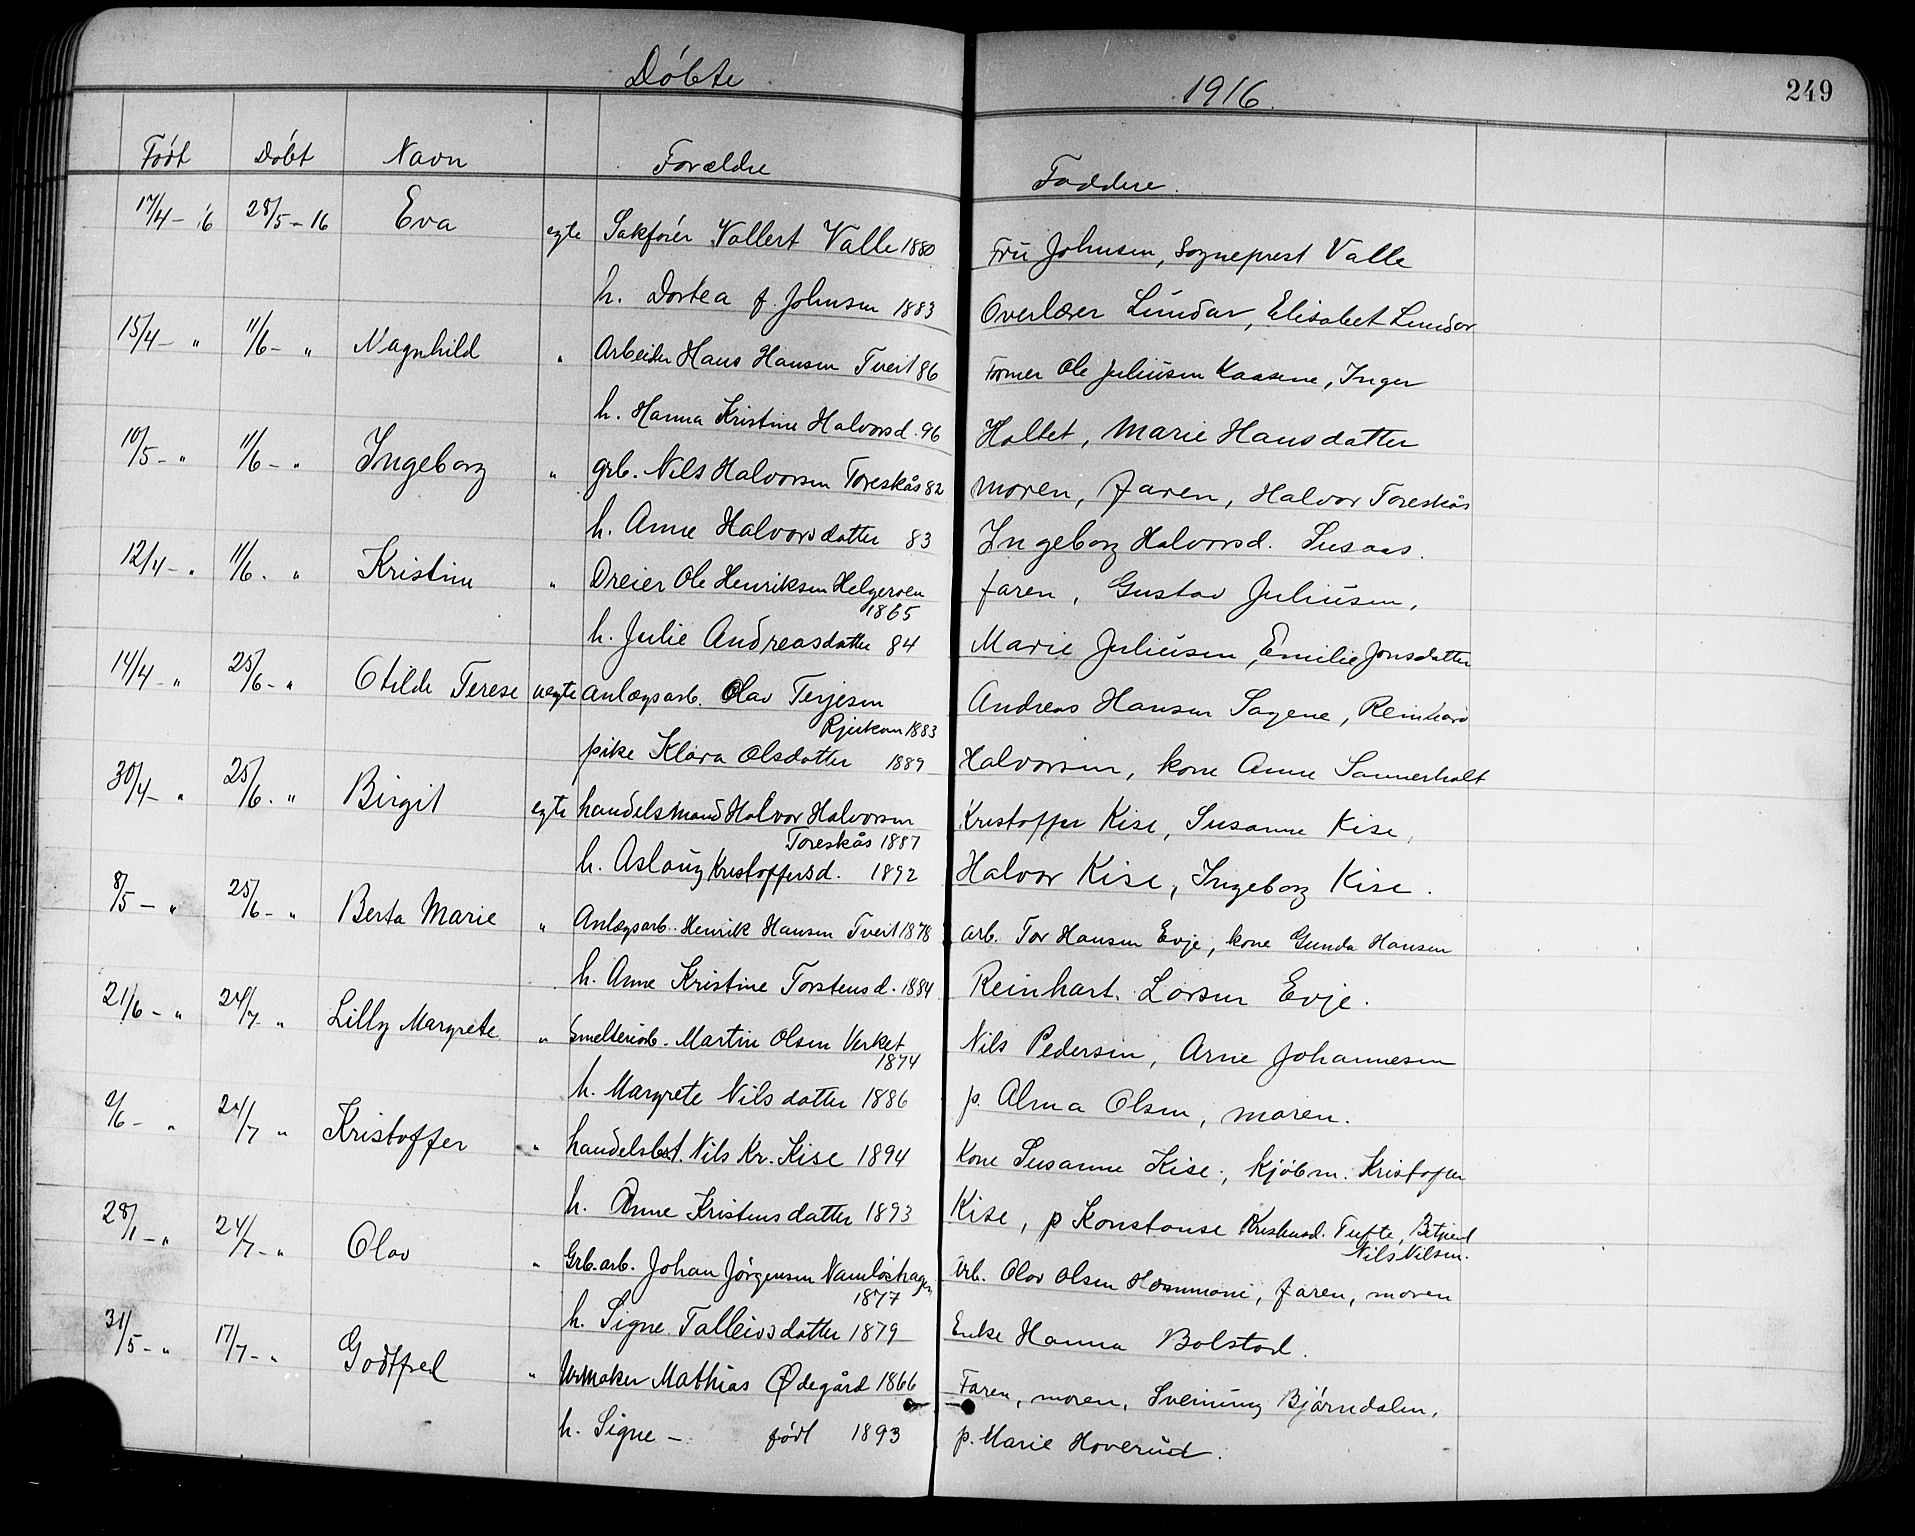 Døbte 1916. 249
Født Døbt Navn Forældre Faddere.
17/4 - 16 28/5 - 16 Eva egte Sakfører Vollert Valle 1880 Fru Johnsen, Sogneprest Valle
h. Dortea f. Johnsen 1883 Overlærer Lundar, Elisabet Lundar
15/4 - " 11/6 - " Ragnhild " Arbeider Hans Hansen Tveit 86 Former Ole Juliusen Kaasene, Inger
h. Hanna Kristine Halvorsd. 96 Holtet, Marie Hansdatter
10/5 - " 11/6 - " Ingeborg " grb. Nils Halvorsen Toreskås 82 moren, faren, Halvor Toreskås
h. Anne Halvorsdatter 83 Ingeborg Halvorsd. Susaas.
12/4 - " 11/6 - " Kristine " Dreier Ole Henriksen Helgeroen faren, Gustav Juliusen,
1865
h. Julie Andreasdatter 84 Marie Juliusen, Emilie Jonsdatter
14/4 - " 25/6 - " Otilde Terese uegte anlægsarb. Olav Terjesen Andreas Hansen Sagene, Reinhard
Rjukan 1883
pike Klara Olsdatter 1889 Halvorsen, kone Anne Sannerholt
30/4 - " 25/6 - " Birgit egte handelsmand Halvor Halvorsen Kristoffer Kise, Susanne Kise,
Toreskås 1887
h. Aslaug Kristoffersd. 1892 Halvor Kise, Ingeborg Kise.
8/5 - " 25/6 - " Berta Marie " Anlægsarb. Henrik Hansen Tveit 1878 arb. Tor Hansen Evje, kone Gunda Hansen
h. Anne Kristine Torstensd. 1884 Reinhart Larsen Evje.
21/6 - " 24/7 - " Lilly Margrete " Smelteriarb. Martin Olsen Verket Nils Pedersen, Arne Johannesen
1874
h. Margrete Nilsdatter 1886 p. Alma Olsen, moren.
/6 - " 24/7 " Kristoffer " handelsbet. Nils Kr. Kise 1894 Kone Susanne Kise, kjøbm. Kristoffer
h. Anne Kristensdatter 1893 Kise, p Konstanse Kristensd. Tufte, Betjent
Nils Nilsen.
28/1 - " 24/7 - " Olav " Grb. arb. Johan Jørgensen Namløshagen arb. Olav Olsen Hammane, faren, moren
1877
h. Signe Talleivsdatter 1879 Enke Hanna Bolstad.
31/5 - " 17/7 - " Godtfred " Urmaker Mathias Ødegård 1866 Faren, moren, Sveinung Bjørndalen,
h. Signe - født 1893 p. Marie Hoverud.